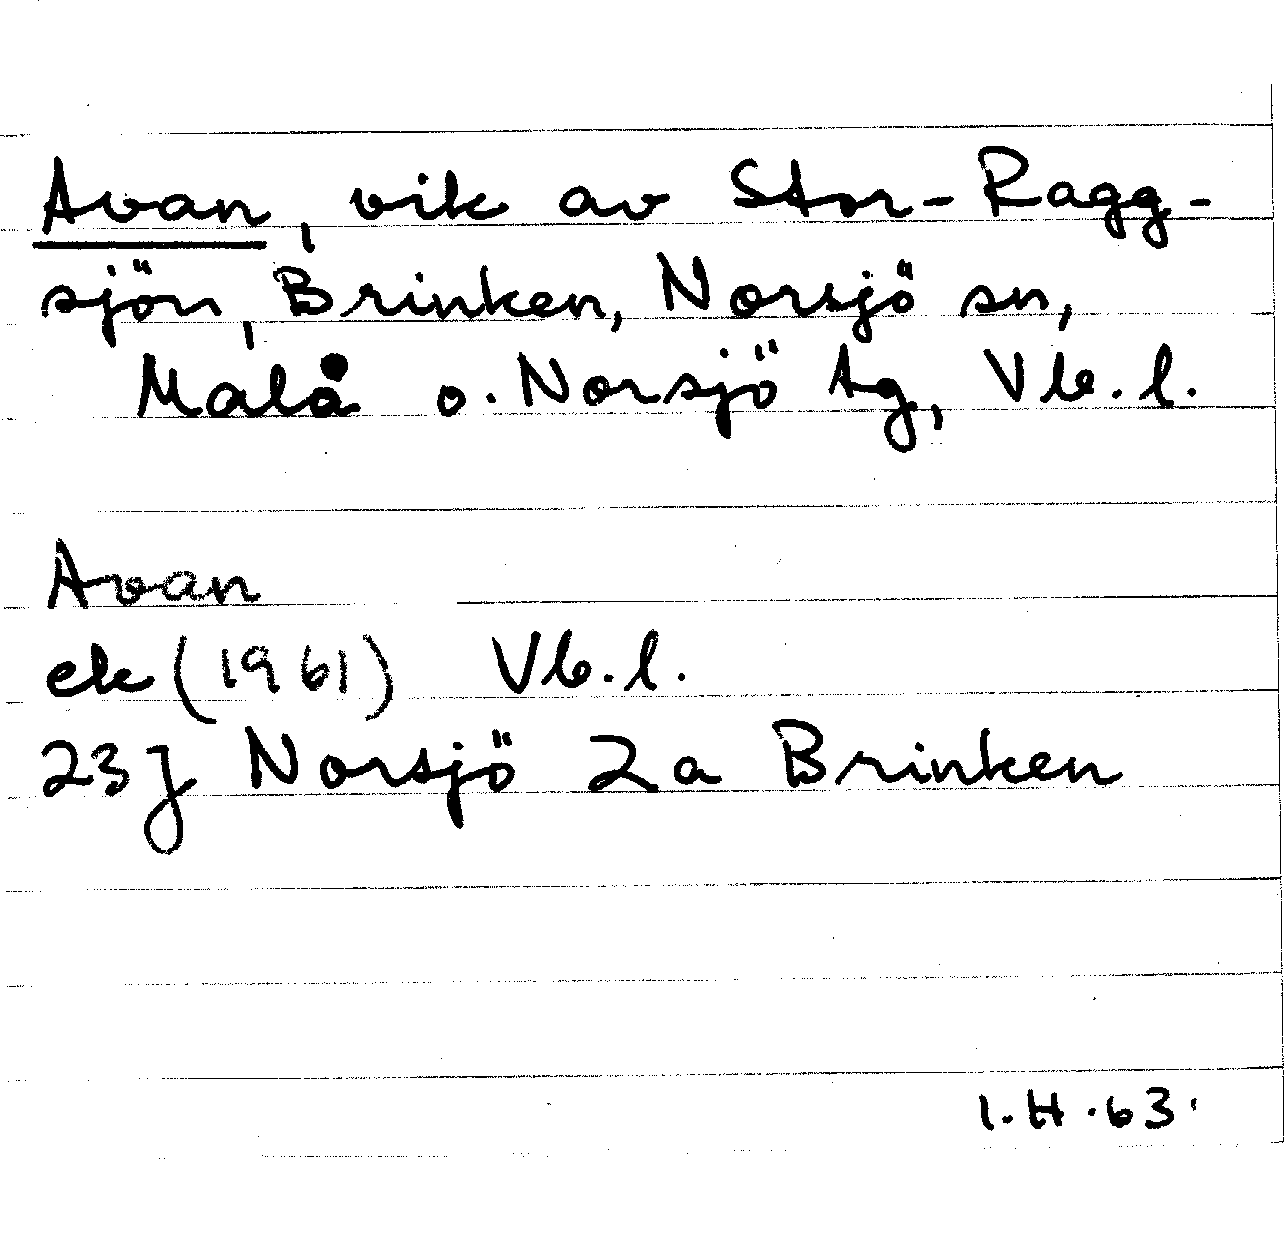 Avan, vik av Stor-Ragg-
sjön, Brinken, Norsjö sn,
Malå o. Norsjö tg, Vb.l.
Avan
ek (1961) Vb.l.
23J Norsjö 2a Brinken
I.H.63.